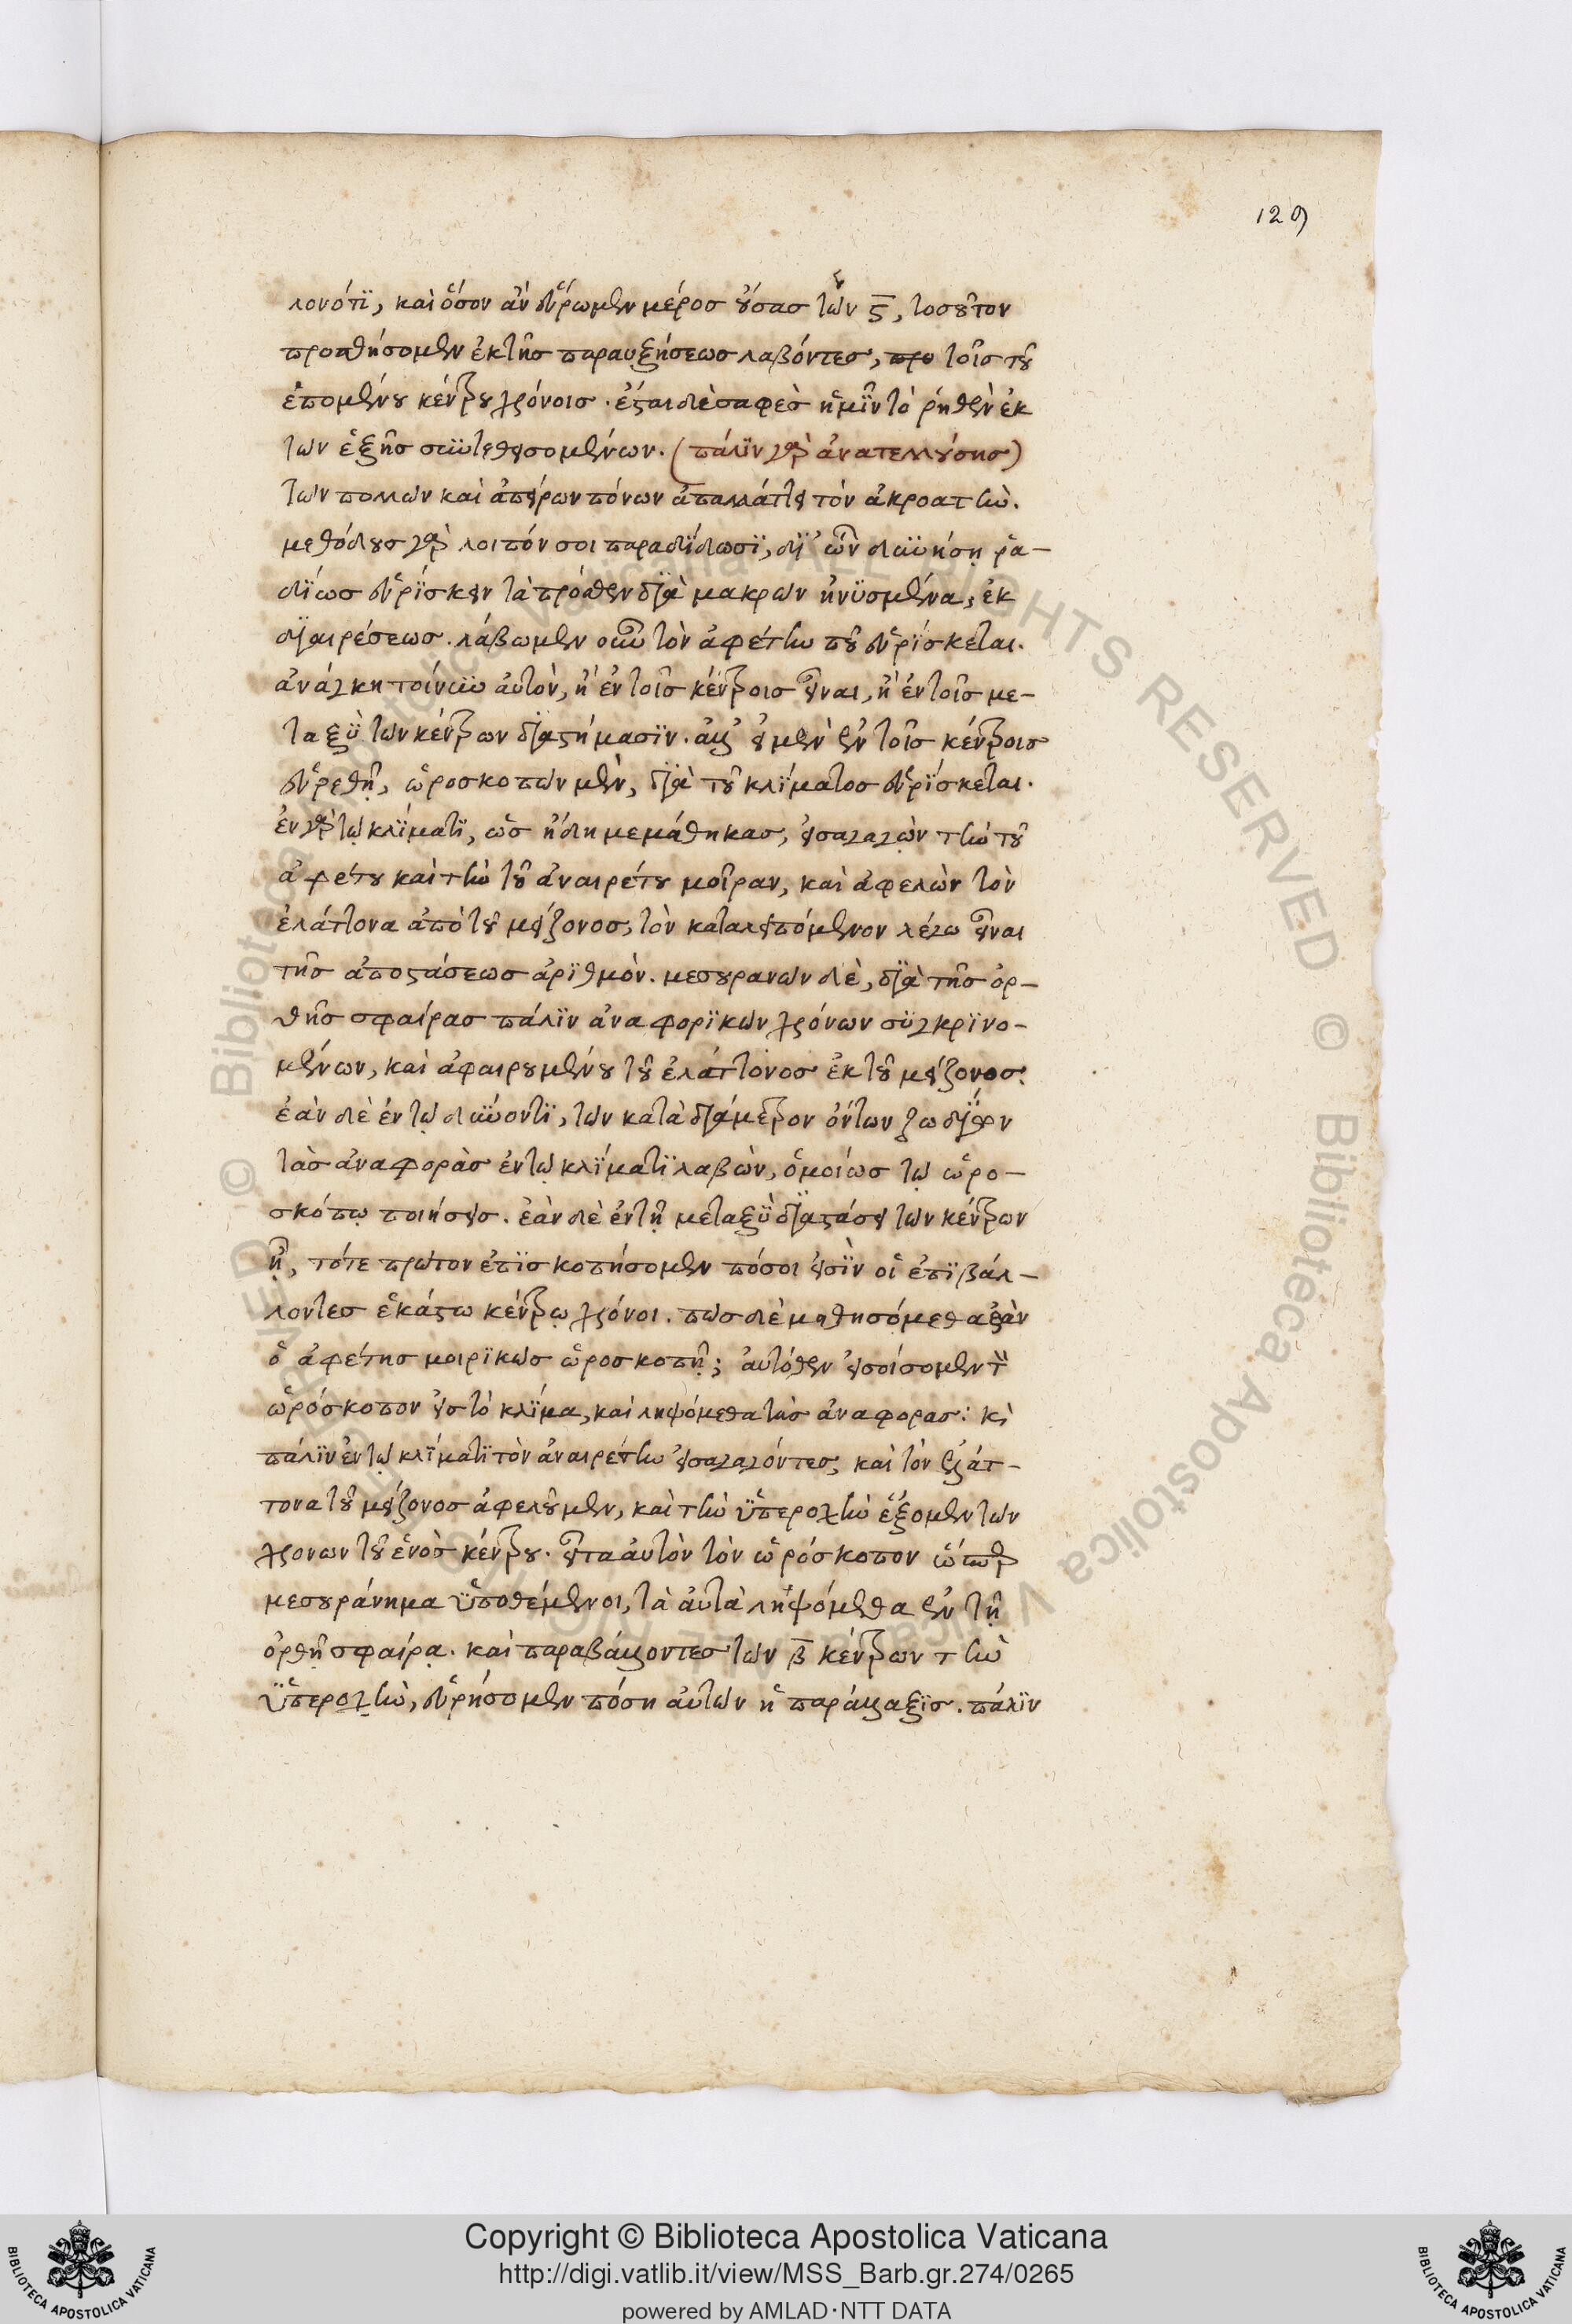 129
λονότϊ, καὶ ὅσον ἂν εὕρωμεν μέροσ οὔσασ τῶν ς̄, τοσοῦτον
προσθήσομεν ἐκ τῆσ παραυξήσεωσ λαβόντεσ, τοῖσ τοῦ
ἑπομένου κέντρου χρόνοισ. ἔσται δὲ σαφὲσ ἡμῖν τὸ ῥηθὲν ἐκ
τῶν ἑξῆσ συντεθησομένων. (πάλϊν γὰρ ἀνατελλούσησ)
τῶν πολλῶν καὶ ἀπείρων πόνων ἀπαλλάττει τὸν ἀκροατὴν.
μεθόδουσ γὰρ λοιπόν σοι παραδίδωσϊ, δϊ' ὧν δυνήσῃ ῥα-
δϊίωσ εὑρΐσκειν τὰ πρόσθεν δϊὰ μακρῶν ἠνϋσμένα, ἐκ
δϊαιρέσεωσ. λάβωμεν οὖν τὸν ἀφέτην ποῦ εὑρΐσκεται.
ἀνάγκη τοίνυν αὐτὸν, ἢ ἐν τοῖσ κέντροισ εἶναι, ἢ ἐν τοῖσ με-
ταξϋ τῶν κέντρων δϊαστήμασϊν. ἀλλ' εἰ μὲν ἐν τοῖσ κέντροισ
εὑρεθῇ, ὡροσκοπῶν μὲν, δϊὰ τοῦ κλΐματοσ εὑρΐσκεται.
ἐν γὰρ τῷ κλΐματϊ, ὡσ ἤδη μεμάθηκασ, εἰσαγαγὼν τὴν τοῦ
ἀφέτου καὶ τὴν τοῦ ἀναιρέτου μοῖραν, καὶ ἀφελὼν τὸν
ἐλάττονα ἀπὸ τοῦ μείζονοσ, τὸν καταλειπόμενον λέγω εἶναι
τῆσ ἀποστάσεωσ ἀρϊθμὸν. μεσουρανῶν δὲ, δϊὰ τῆσ ὀρ-
θῆσ σφαίρασ πάλϊν ἀναφορϊκῶν χρόνων σϋγκρϊνο-
μένων, καὶ ἀφαιρουμένου τοῦ ἐλάττονοσ ἐκ τοῦ μείζονοσ.
ἐὰν δὲ ἐν τῷ δύνοντϊ, τῶν κατὰ δϊάμετρον ὄντων ζωδϊίων
τὰσ ἀναφορὰσ ἐν τῷ κλΐματϊ λαβὼν, ὁμοίωσ τῷ ὡρο-
σκόπῳ ποιήσεισ. ἐὰν δὲ ἐν τῇ μεταξϋ δϊαστάσει τῶν κέντρων
ᾖ, τότε πρῶτον ἐπϊσκοπήσομεν πόσοι εἰσϊν οἱ ἐπϊβάλ-
λοντεσ ἑκάστω κέντρῳ χρόνοι. πῶσ δὲ μαθησόμεθα ἐὰν
ὁ ἀφέτησ μοιρϊκῶσ ὡροσκοπῇ; αὐτόθεν εἰσοίσομεν τ̀
ὡρόσκοπον εἰσ τὸ κλΐμα, καὶ ληψόμεθα τὰσ ἀναφορασ: κὶ
πάλϊν ἐν τῷ κλΐματϊ τὸν ἀναιρέτην εἰσαγαγόντεσ, καὶ τὸν ἐλάτ-
τονα τοῦ μείζονοσ ἀφελοῦμεν, καὶ τὴν ὕπεροχὴν ἕξομεν τῶν
χρονων τοῦ ἑνὸσ κέντρου. εἶτα αὐτὸν τὸν ὡρόσκοπον ὥσπερ
μεσουράνημα ὑποθέμενοι, τὰ αὐτὰ ληψόμεθα ἐν τῇ
ὀρθῇ σφαίρᾳ. καὶ παραβάλλοντεσ τῶν β̄ κέντρων τὴν
ὕπεροχὴν, εὑρήσομεν πόση αὐτῶν ἡ παράλλαξϊσ. πάλϊν
Copyright © Biblioteca Apostolica Vaticana
http://digi.vatlib.it/view/MSS_Barb.gr.274/0265
powered by AMLAD·NTT DATA